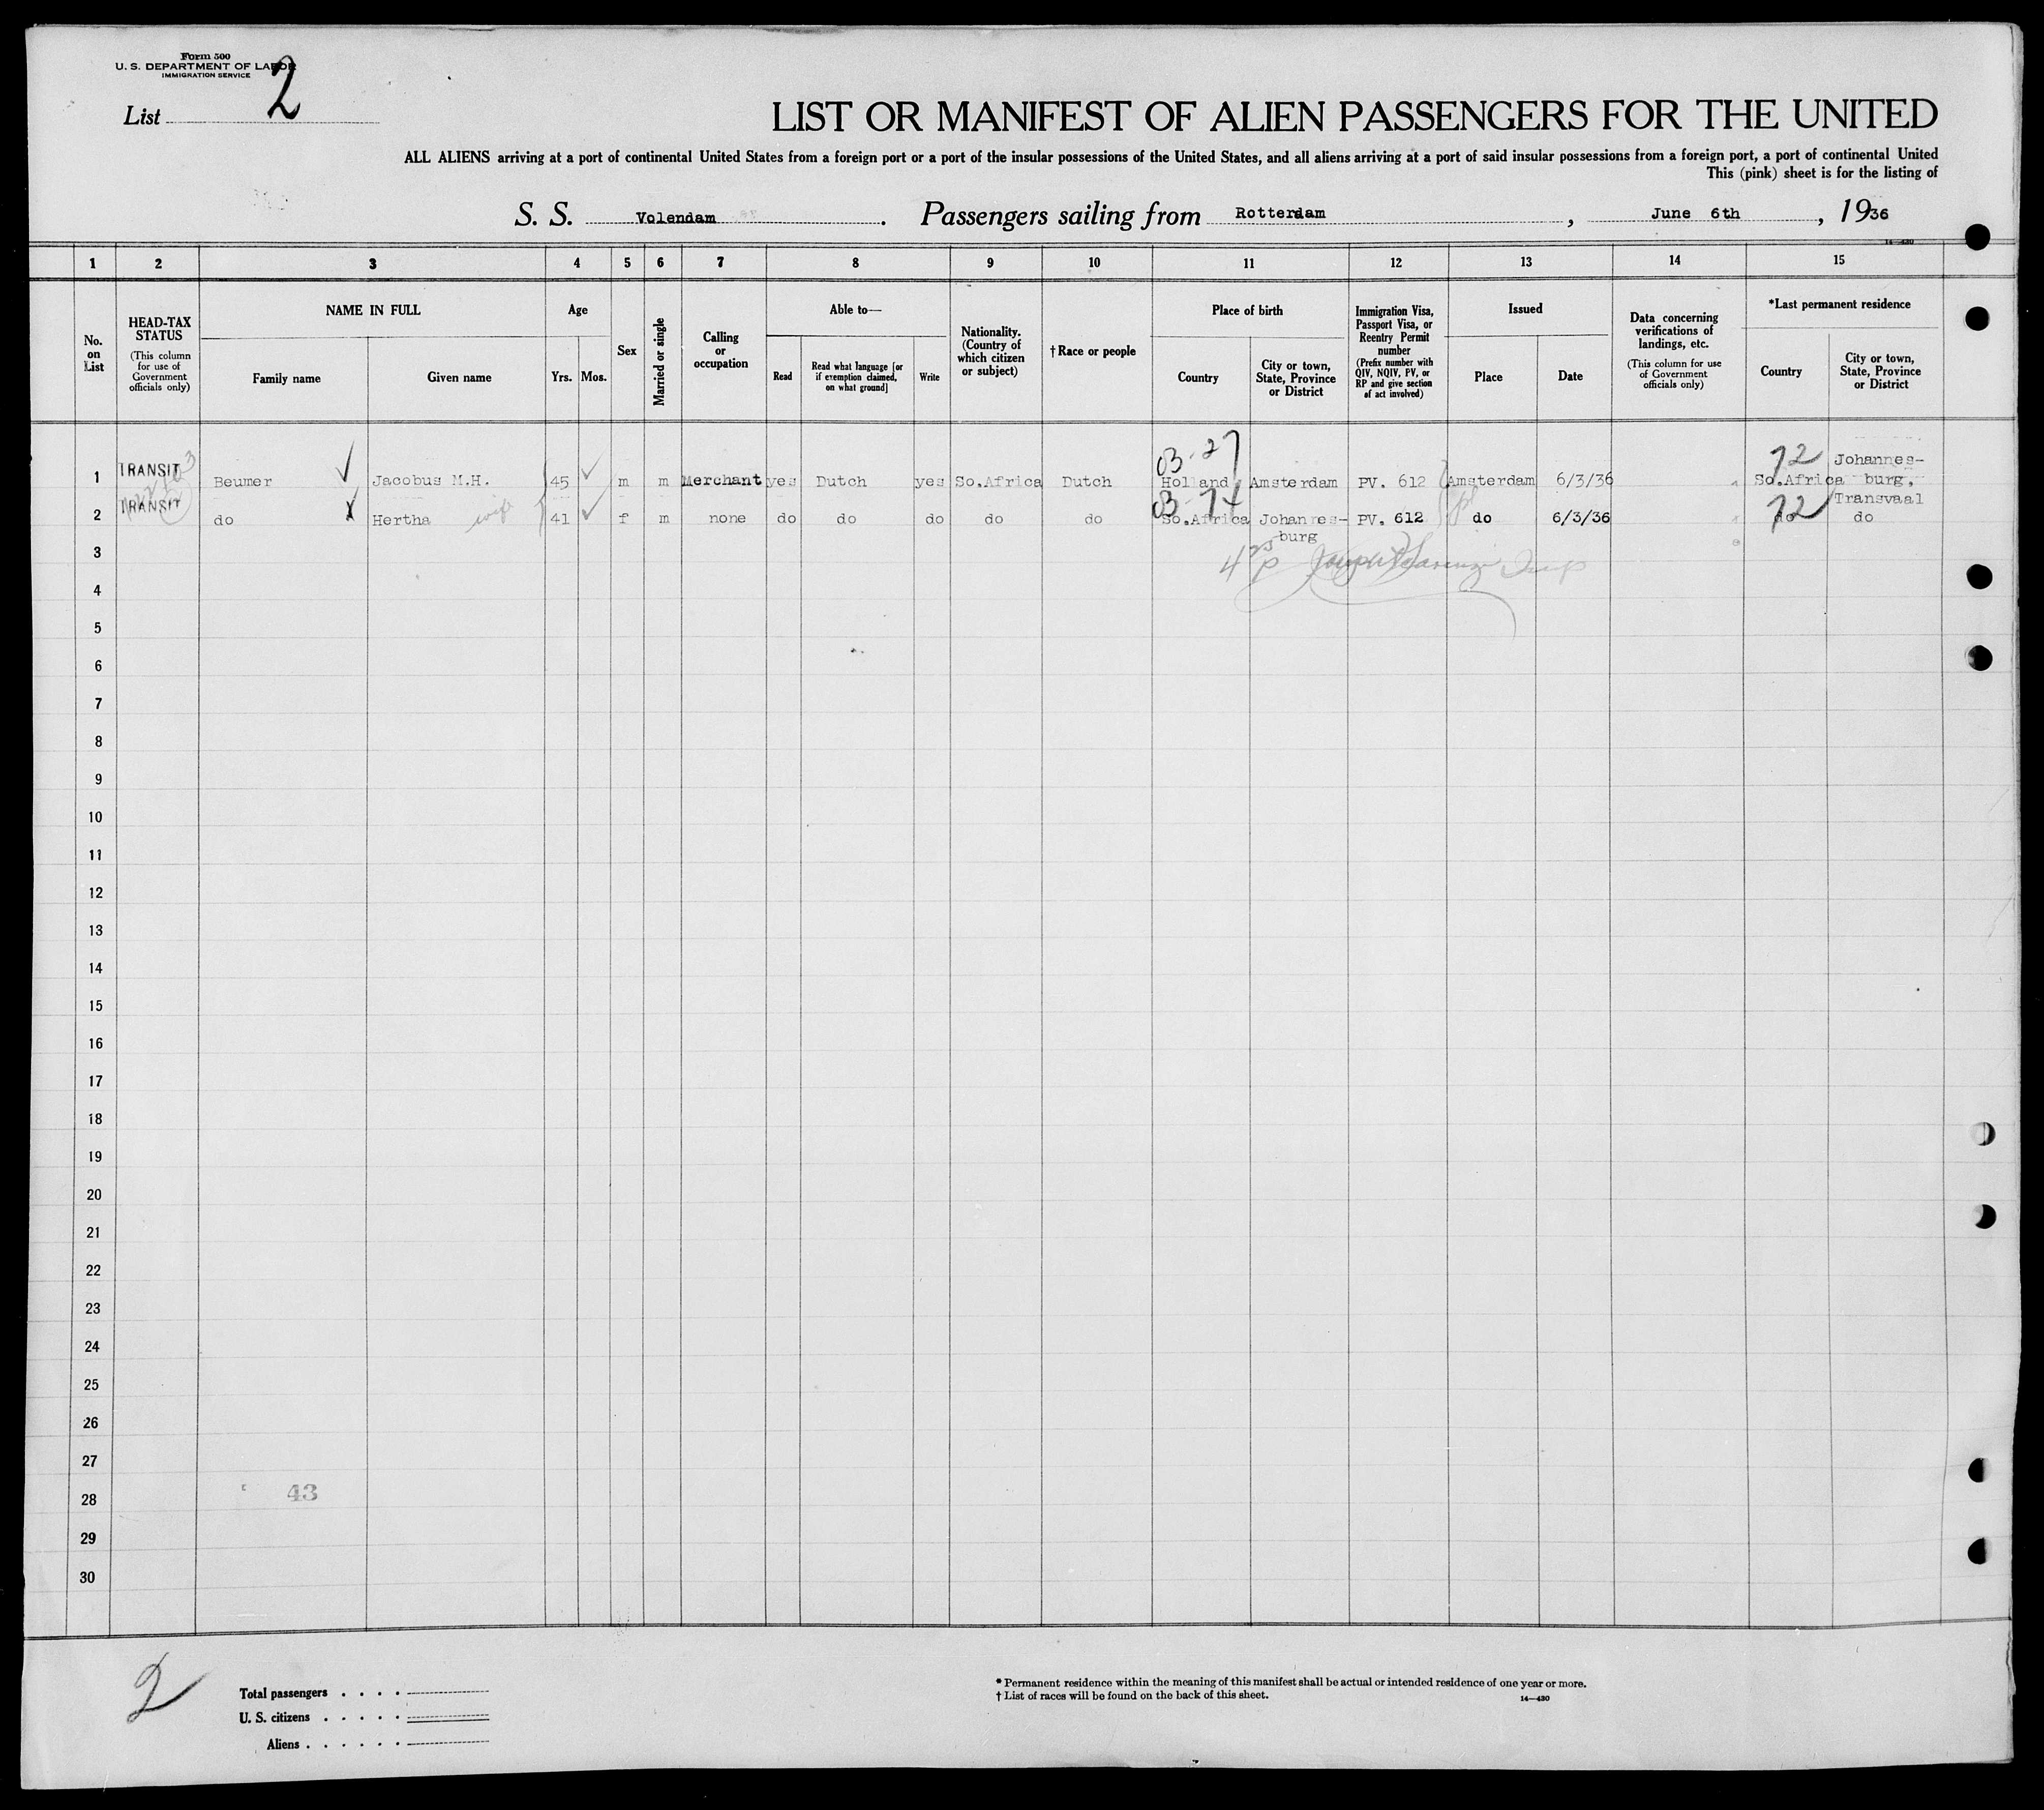 Form 500
U. S. DEPARTMENT OF LABOR
IMMIGRATION SERVICE
List 2
LIST OR MANIFEST OF ALIEN PASSENGERS FOR THE UNITED
ALL ALIENS arriving at a port of continental United States from a foreign port or a port of the insular possessions of the United States, and all aliens arriving at a port of said insular possessions from a foreign port, a port of continental United
This (pink) sheet is for the listing of
S. S. Volendam. Passengers sailing from Rotterdam, June 6th, 1936
14—430
1 2 3 4 5 6 7 8 9 10 11 12 13 14 15
No. on List
HEAD-TAX STATUS
(This column for use of Government officials only)
NAME IN FULL
Family name
Given name
Age
Yrs. Mos.
Sex
Married or single
Calling or occupation
Able to—
Read
Read what language [or if exemption claimed, on what ground]
Write
Nationality. (Country of which citizen or subject)
† Race or people
Place of birth
Country
City or town, State, Province or District
Immigration Visa, Passport Visa, or Reentry Permit number
(Prefix number with QIV, NQIV, PV, or RP and give section of act involved)
Issued
Place
Date
Data concerning verifications of landings, etc.
(This column for use of Government officials only)
*Last permanent residence
Country
City or town, State, Province or District
03-27 72 Johannes-
1 TRANSIT Beumer Jacobus M.H. 45 m m Merchant yes Dutch yes So.Africa Dutch Holland Amsterdam PV. 612 Amsterdam 6/3/36 So.Africa burg,
03-74 72 Transvaal
2 TRANSIT do Hertha wife 41 f m none do do do do do So.Africa Johannes- PV. 612 do 6/3/36 do do
burg
3
4
5
6
7
8
9
10
11
12
13
14
15
16
17
18
19
20
21
22
23
24
25
26
27
28 43
29
30
2
Total passengers . . . .
U. S. citizens . . . . .
Aliens . . . . . .
* Permanent residence within the meaning of this manifest shall be actual or intended residence of one year or more.
† List of races will be found on the back of this sheet.
14—430